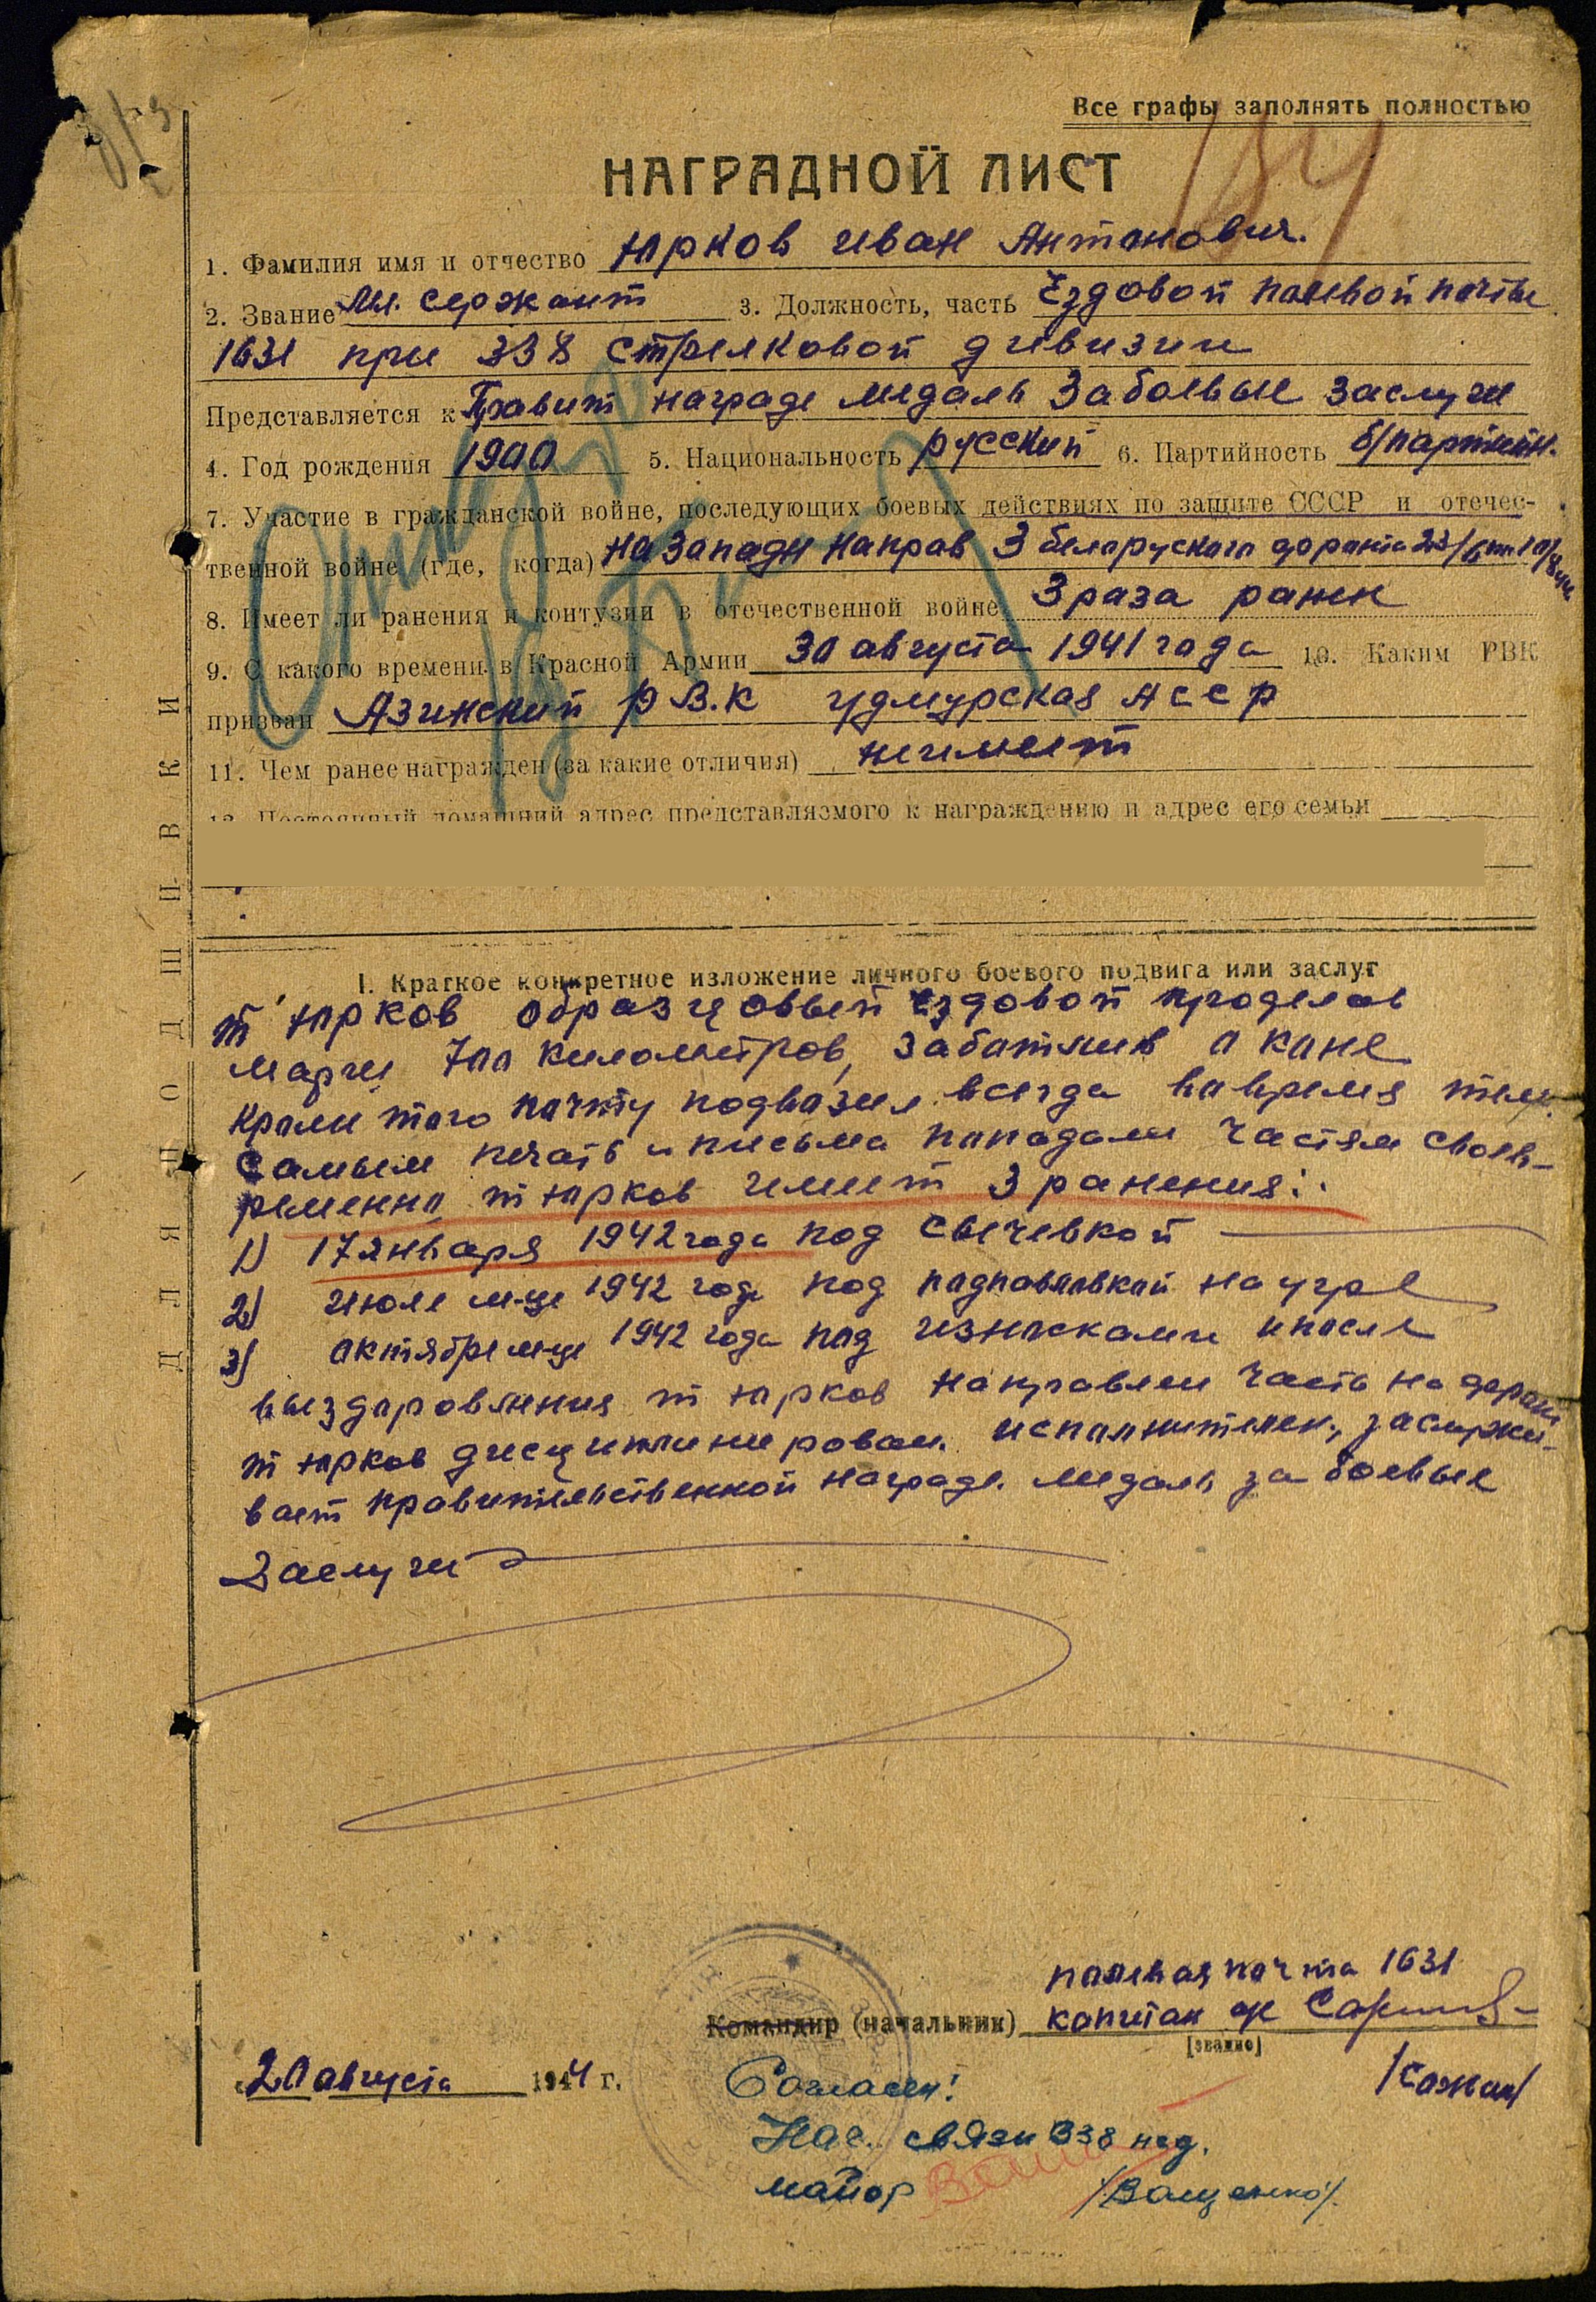 Все графы заполнять полностью
184
НАГРАДНОЙ ЛИСТ
1. Фамилия имя и отчество Юрков Иван Антонович.
2. Звание Мл. Сержант 3. Должность, часть Ездовой полевой почты
1631 при 338 стрелковой дивизии
Представляется к Правит награде медаль За боевые заслуги
4. Год рождения 1900 5. Национальность русский 6. Партийность б/партийн.
7. Участие в гражданской войне, последующих боевых действиях по защите СССР и отечес-
твенной войне (где, когда) на Западн направ 3 беларуского фронта 23/6
8. Имеет ли ранения и контузии в отечественной войне 3 раза ранен
9. С какого времени в Красной Армии 30 августа 1941 года 10. Каким РВК
призван Азинский Р.В.К Удмурская АССР
11. Чем ранее награжден (за какие отличия) неимеет
12. Постоянный домашний адрес представляемого к награждению и адрес его семьи
ДЛЯ ПОДШИВКИ
I. Краткое конкретное изложение личного боевого подвига или заслуг
т Юрков образцовый ездовой проделав
марш 700 километров, заботлив о коне
кроме того почту подвозил всегда вовремя тем
самым печать и письма попадали частям своев-
ременно т Юрков имеет 3 ранения:
1) 17 января 1942 года под Свичевкой
2) июле м-це 1942 года под на угре
3) октябре м-це 1942 года под износками и после
выздоровления т Юрков направлен часть на фронт
т Юрков дисциплинирован. исполнителен, заслужи-
вает правительственной награде. медаль за боевые
заслуги
полевая почта 1631
Командир (начальник) капитан
[звание]
"20 августа 1944 г.
Согласен!
Нач. связи 338 сд.
майор /Ващенко/.